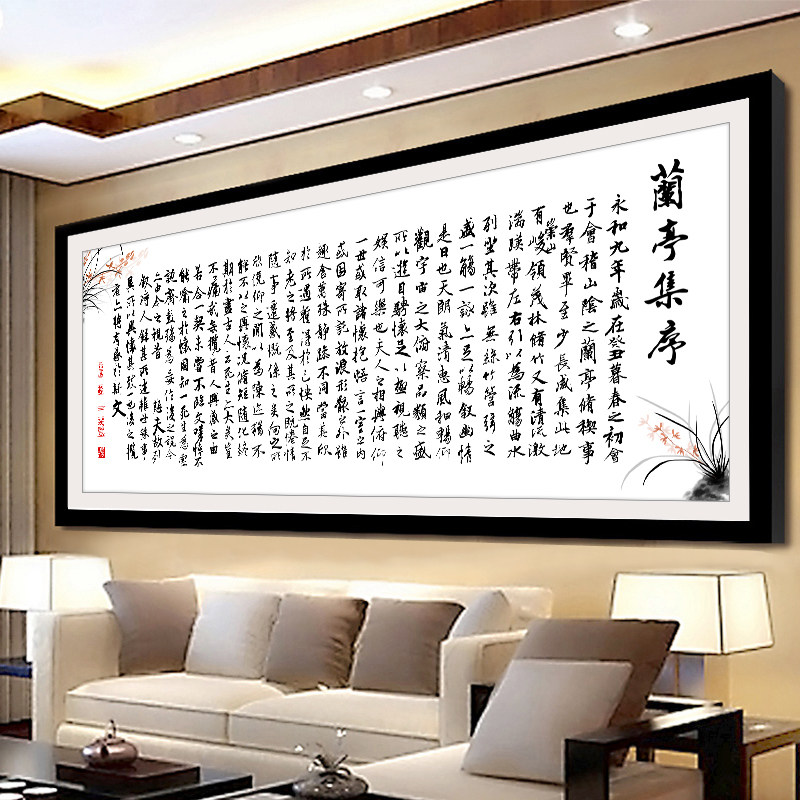 蘭亭集序
永和九年歲在癸丑暮春之初會
于會稽山陰之蘭亭脩稧事
也羣賢畢至少長咸集此地
有崇山峻領茂林脩竹又有清流激
湍暎帶左右引以為流觴曲水
列坐其次雖無絲竹管弦之
盛一觴一詠上足以暢敘幽情
是日也天朗氣清惠風和暢仰
觀宇宙之大俯察品類之盛
所以遊目騁懷足以極視聽之
娛信可樂也夫人之相與俯仰
一世或取諸懷抱悟言一室之內
或因寄所託放浪形骸之外雖
趣舍萬殊靜躁不同當其欣
於所遇蹔得於己快然自足不
知老之將至及其所之既惓情
隨事遷感慨係之矣向之所
欣俛仰之間以為陳迹猶不
能不以之興懷況脩短隨化終
期於盡古人云死生亦大矣豈
不痛哉每攬昔人興感之由
若合一契未嘗不臨文嗟悼不
能喻之於懷固知一死生為虛
誕齊彭殤為妄作後之視今
亦由今之視昔悲夫故列
敘時人錄其所述雖世殊事
異所以興懷其致一也後之攬
者亦將有感於斯文